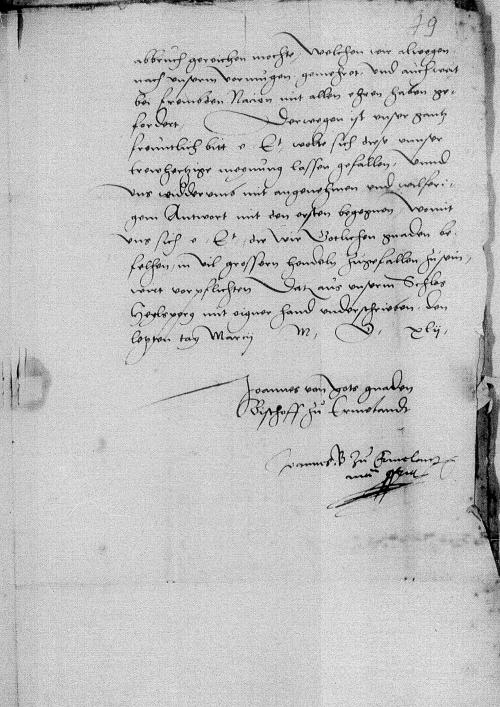 79
abbruch gereichen mochte, Welchen wir alwegen
nach unserm vormugen gemehret, und auch weit
bei frembden Nation mit allen ehren haben ge-
fordert. Derwegen ist unser gantz
freuntlich bitt e. Et. wolle sich diese unnser
trewhertzige meynung lassen gefallen, unnd
uns widerumb mit angenehmen und wilfari-
gem Antwort mit den ersten begegnen, womit
uns sich e. Et., die wir Gotlichen gnaden be-
felhen, in vil grossern handeln zugefallen zu sein
wirt vorpflichten. Dat. aus unserm Schlos
Heylsperg mit eigner hand underschrieben, den
letzten tag Marcii M. D. xlij.
Joannes von gots gnaden
Bischoff zu Ermelandt
Joannes B zu Ermelant